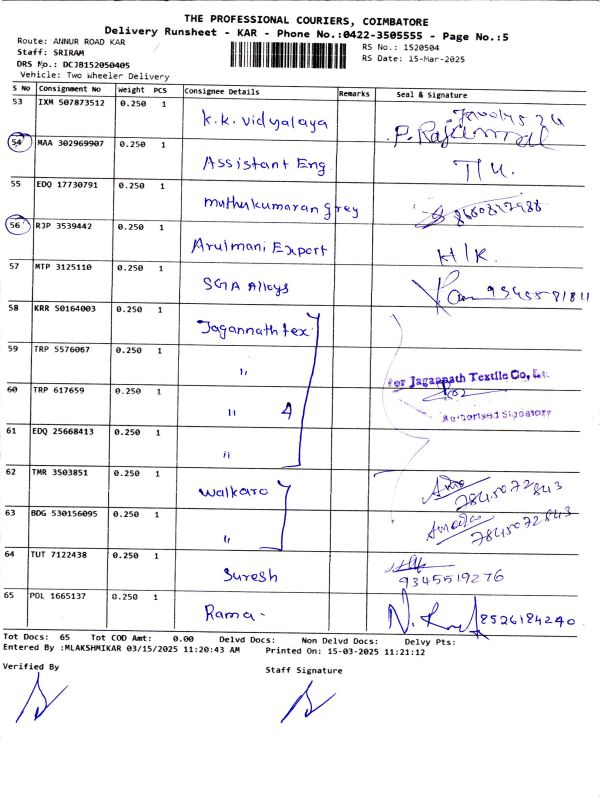 THE PROFESSIONAL COURIERS, COIMBATORE
Delivery Runsheet - KAR - Phone No.:0422-3505555 - Page No.:5
Route: ANNUR ROAD KAR
RS No.: 1520504
Staff: SRIRAM
RS Date: 15-Mar-2025
DRS No.: DCJB152050405
Vehicle: Two Wheeler Delivery
S No Consignment No Weight PCS Consignee Details Remarks Seal & Signature
53 IXM 507873512 0.250 1 K.K. Vidyalaya P. Rajammal
54 MAA 302969907 0.250 1 Assistant Eng
55 EDQ 17730791 0.250 1 muthukumaran grey
56 RJP 3539442 0.250 1 Arulmani Export H/K.
57 MTP 3125110 0.250 1 SGA Alloys
58 KRR 50164003 0.250 1 Jagannath tex
59 TRP 5576067 0.250 1 "
For Jagannath Textile Co, Lt
60 TRP 617659 0.250 1 " 4
Authorised Signatory
61 EDQ 25668413 0.250 1 "
62 TMR 3503851 0.250 1 Walkaro 7845072843
63 BDG 530156095 0.250 1 " 7845072843
64 TUT 7122438 0.250 1 Suresh 9345519276
65 POL 1665137 0.250 1 Rama. 8526184240
Tot Docs: 65 Tot COD Amt: 0.00 Delvd Docs: Non Delvd Docs: Delvy Pts:
Entered By :MLAKSHMIKAR 03/15/2025 11:20:43 AM Printed On: 15-03-2025 11:21:12
Verified By
Staff Signature